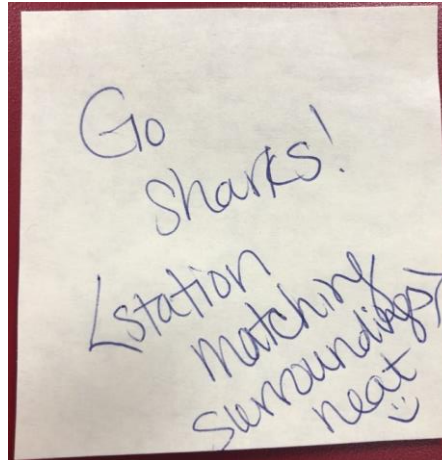 Go
Sharks!
[station
matching
surroundings]
neat